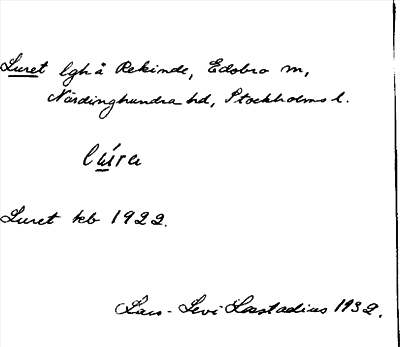 Luret lgh å Rekinde, Edsbro sn,
Närdinghundra hd, Stockholms l.
lúra
Luret kb 1922.
Lars-Levi Læstadius 1932.